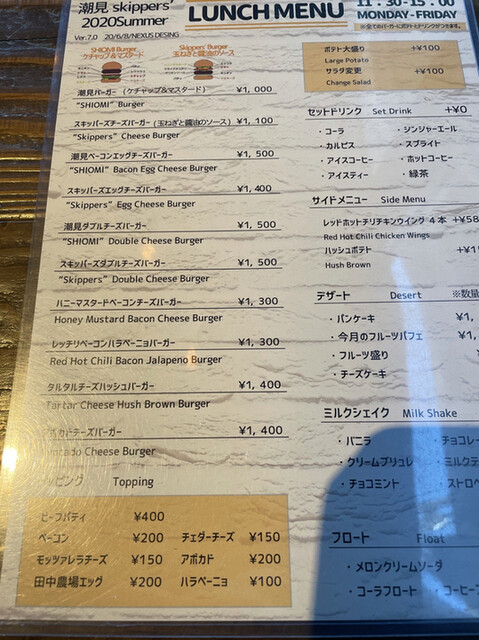 潮見 skippers'
2020Summer
Ver.7.0 20/6/8/NEXUS DESING
SHIOMI Burger
ケチャップ&マスタード
Skippers' Burger
玉ねぎと醤油のソース
潮見バーガー (ケチャップ&マスタード) ¥1, 000
“SHIOMI” Burger
スキッパーズチーズバーガー (玉ねぎと醤油のソース) ¥1, 100
“Skippers” Cheese Burger
潮見ベーコンエッグチーズバーガー ¥1, 500
“SHIOMI” Bacon Egg Cheese Burger
スキッパーズエッグチーズバーガー ¥1, 400
“Skippers” Egg Cheese Burger
潮見ダブルチーズバーガー ¥1, 500
“SHIOMI” Double Cheese Burger
スキッパーズダブルチーズバーガー ¥1, 500
“Skippers” Double Cheese Burger
ハニーマスタードベーコンチーズバーガー ¥1, 300
Honey Mustard Bacon Cheese Burger
レッチリベーコンハラペーニョバーガー ¥1, 300
Red Hot Chili Bacon Jalapeno Burger
タルタルチーズハッシュバーガー ¥1, 400
Tartar Cheese Hush Brown Burger
アボカドチーズバーガー ¥1, 400
Avocado Cheese Burger
トッピング Topping
ビーフパティ ¥400
ベーコン ¥200 チェダーチーズ ¥150
モッツァレラチーズ ¥150 アボカド ¥200
田中農場エッグ ¥200 ハラペーニョ ¥100
LUNCH MENU
11:30-15:00
MONDAY-FRIDAY
※全てのバーガーにポテトとドリンクがつきます。
ポテト大盛り +¥100
Large Potato
サラダ変更 +¥100
Change Salad
セットドリンク Set Drink +¥0
・コーラ ・ジンジャーエール
・カルピス ・スプライト
・アイスコーヒー ・ホットコーヒー
・アイスティー ・緑茶
サイドメニュー Side Menu
レッドホットチリチキンウイング 4 本 +¥58
Red Hot Chili Chicken Wings
ハッシュポテト +¥1
Hush Brown
デザート Desert ※数量
・パンケーキ ¥1,
・今月のフルーツパフェ ¥1,
・フルーツ盛り
・チーズケーキ
ミルクシェイク Milk Shake
・バニラ ・チョコレー
・クリームブリュレ ・ミルクテ
・チョコミント ・ストロベ
フロート Float
・メロンクリームソーダ
・コーラフロート ・コーヒーフ